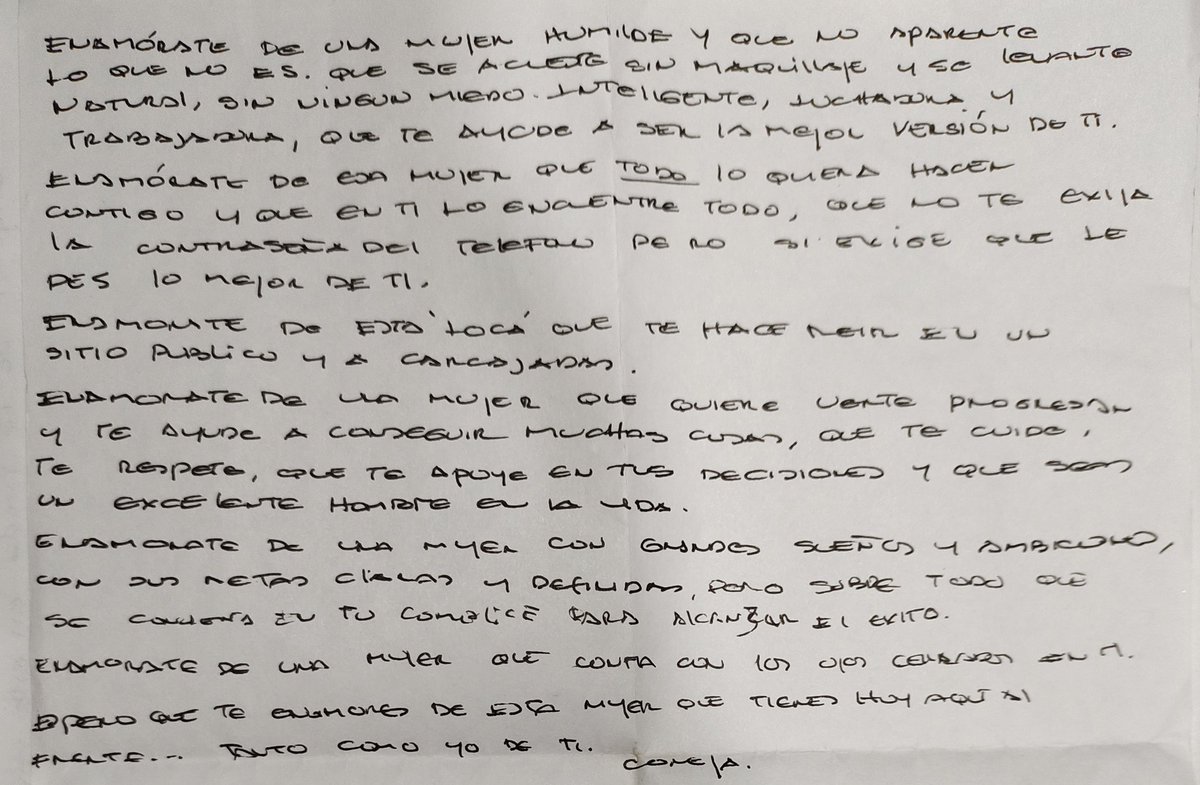 ENAMÓRATE DE UNA MUJER HUMILDE Y QUE NO APARENTE
LO QUE NO ES. QUE SE ACUESTE SIN MAQUILLAJE Y SE LEVANTE
NATURAL, SIN NINGUN MIEDO. INTELIGENTE, LUCHADORA Y
TRABAJADORA, QUE TE AYUDE A SER LA MEJOR VERSIÓN DE TI.
ENAMÓRATE DE ESA MUJER QUE TODO LO QUIERA HACER
CONTIGO Y QUE EN TI LO ENCUENTRE TODO, QUE NO TE EXIJA
LA CONTRASEÑA DEL TELEFONO PERO SI EXIGE QUE LE
DES LO MEJOR DE TI.
ENAMORATE DE ESTA 'LOCA' QUE TE HACE REIR EN UN
SITIO PUBLICO Y A CARCAJADAS.
ENAMORATE DE UNA MUJER QUE QUIERE VERTE PROGRESAR
Y TE AYUDE A CONSEGUIR MUCHAS COSAS, QUE TE CUIDE,
TE RESPETE, QUE TE APOYE EN TUS DECISIONES Y QUE SEAS
UN EXCELENTE HOMBRE EN LA VIDA.
ENAMORATE DE UNA MUJER CON GRANDES SUEÑOS Y AMBICIONES,
CON SUS METAS CLARAS Y DEFINIDAS, PERO SOBRE TODO QUE
SE CONVIERTA EN TU COMPLICE PARA ALCANZAR EL EXITO.
ENAMORATE DE UNA MUJER QUE CONFIA CON LOS OJOS CERRADOS EN TI.
ESPERO QUE TE ENAMORES DE ESTA MUJER QUE TIENES HOY AQUI AL
FRENTE... TANTO COMO YO DE TI.
CONEJA.